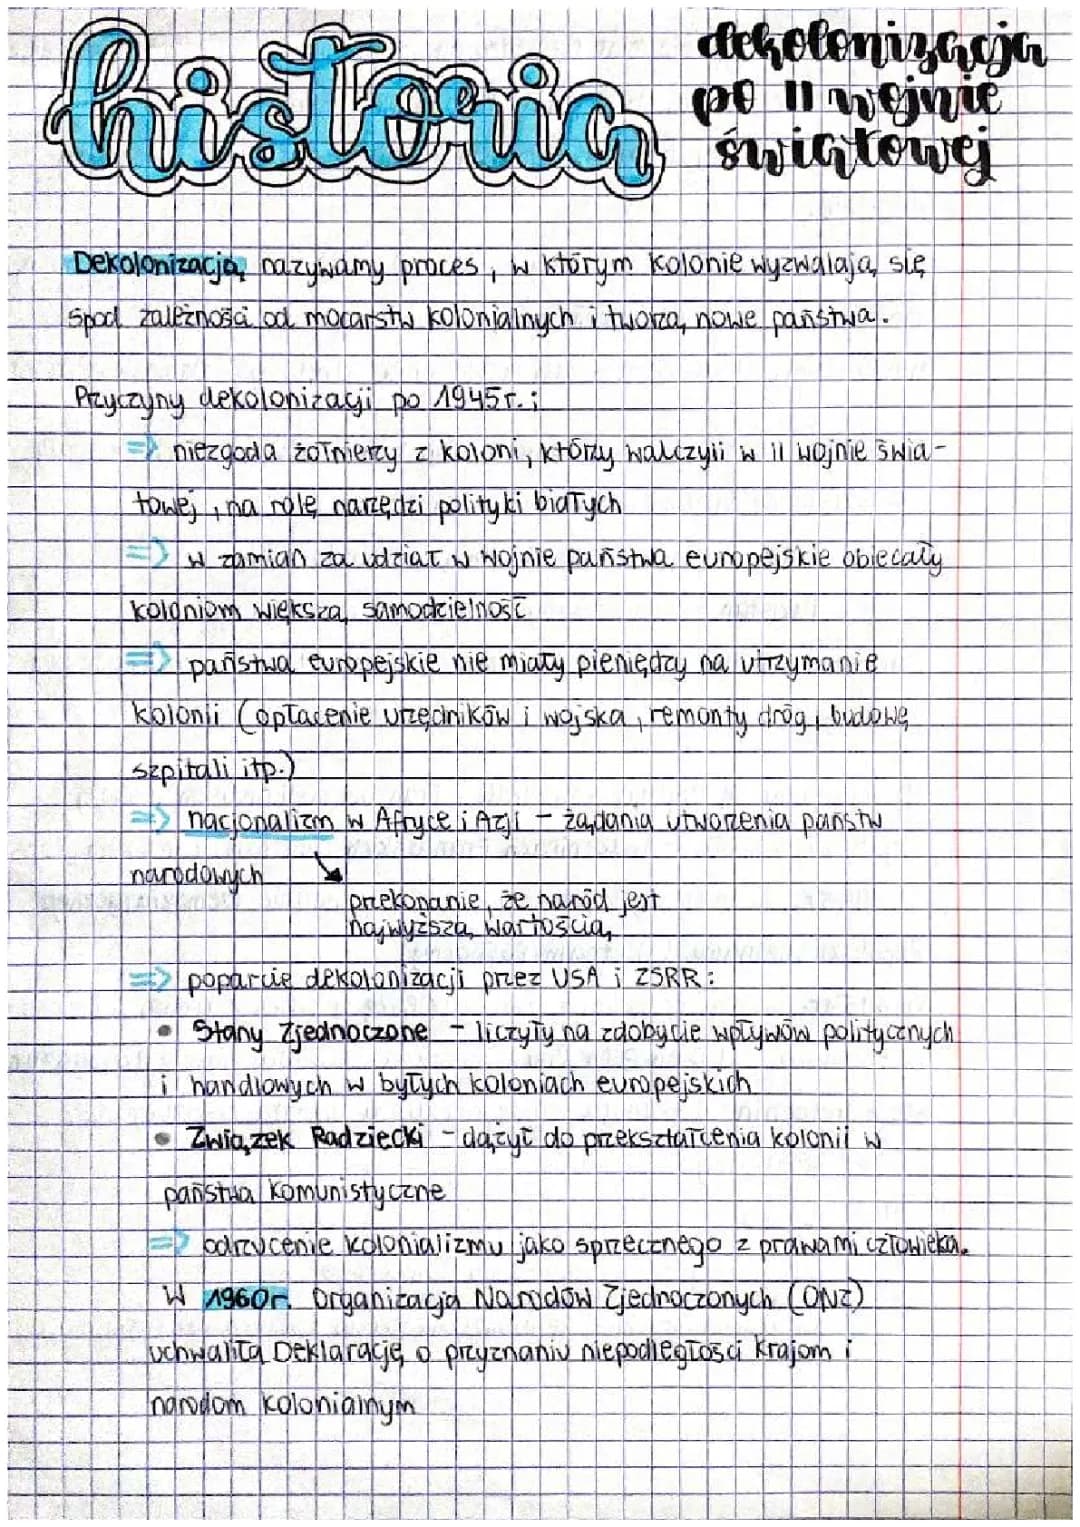 historia
dekolonizacja
po II wojnie
światowej
Dekolonizacją nazywamy proces, w którym kolonie wyzwalają się
spod zależności od mocarstw kolonialnych i tworzą nowe państwa.
Przyczyny dekolonizacji po 1945r.:
=> niezgoda żołnierzy z koloni, którzy walczyli w II wojnie świa-
towej, na rolę narzędzi polityki białych
=> w zamian za udział w wojnie państwa europejskie obiecały
koloniom większą samodzielność
=> państwa europejskie nie miały pieniędzy na utrzymanie
kolonii (opłacenie urzędników i wojska, remonty dróg, budowę
szpitali itp.)
=> nacjonalizm w Afryce i Azji - żądania utworzenia państw
narodowych
przekonanie, że naród jest
najwyższą wartością
=> poparcie dekolonizacji przez USA i ZSRR:
• Stany Zjednoczone - liczyły na zdobycie wpływów politycznych
i handlowych w byłych koloniach europejskich
• Związek Radziecki - dążył do przekształcenia kolonii w
państwa komunistyczne
=> odrzucenie kolonializmu jako sprzecznego z prawami człowieka.
W 1960r. Organizacja Narodów Zjednoczonych (ONZ)
uchwaliła Deklarację o przyznaniu niepodległości krajom i
narodom kolonialnym